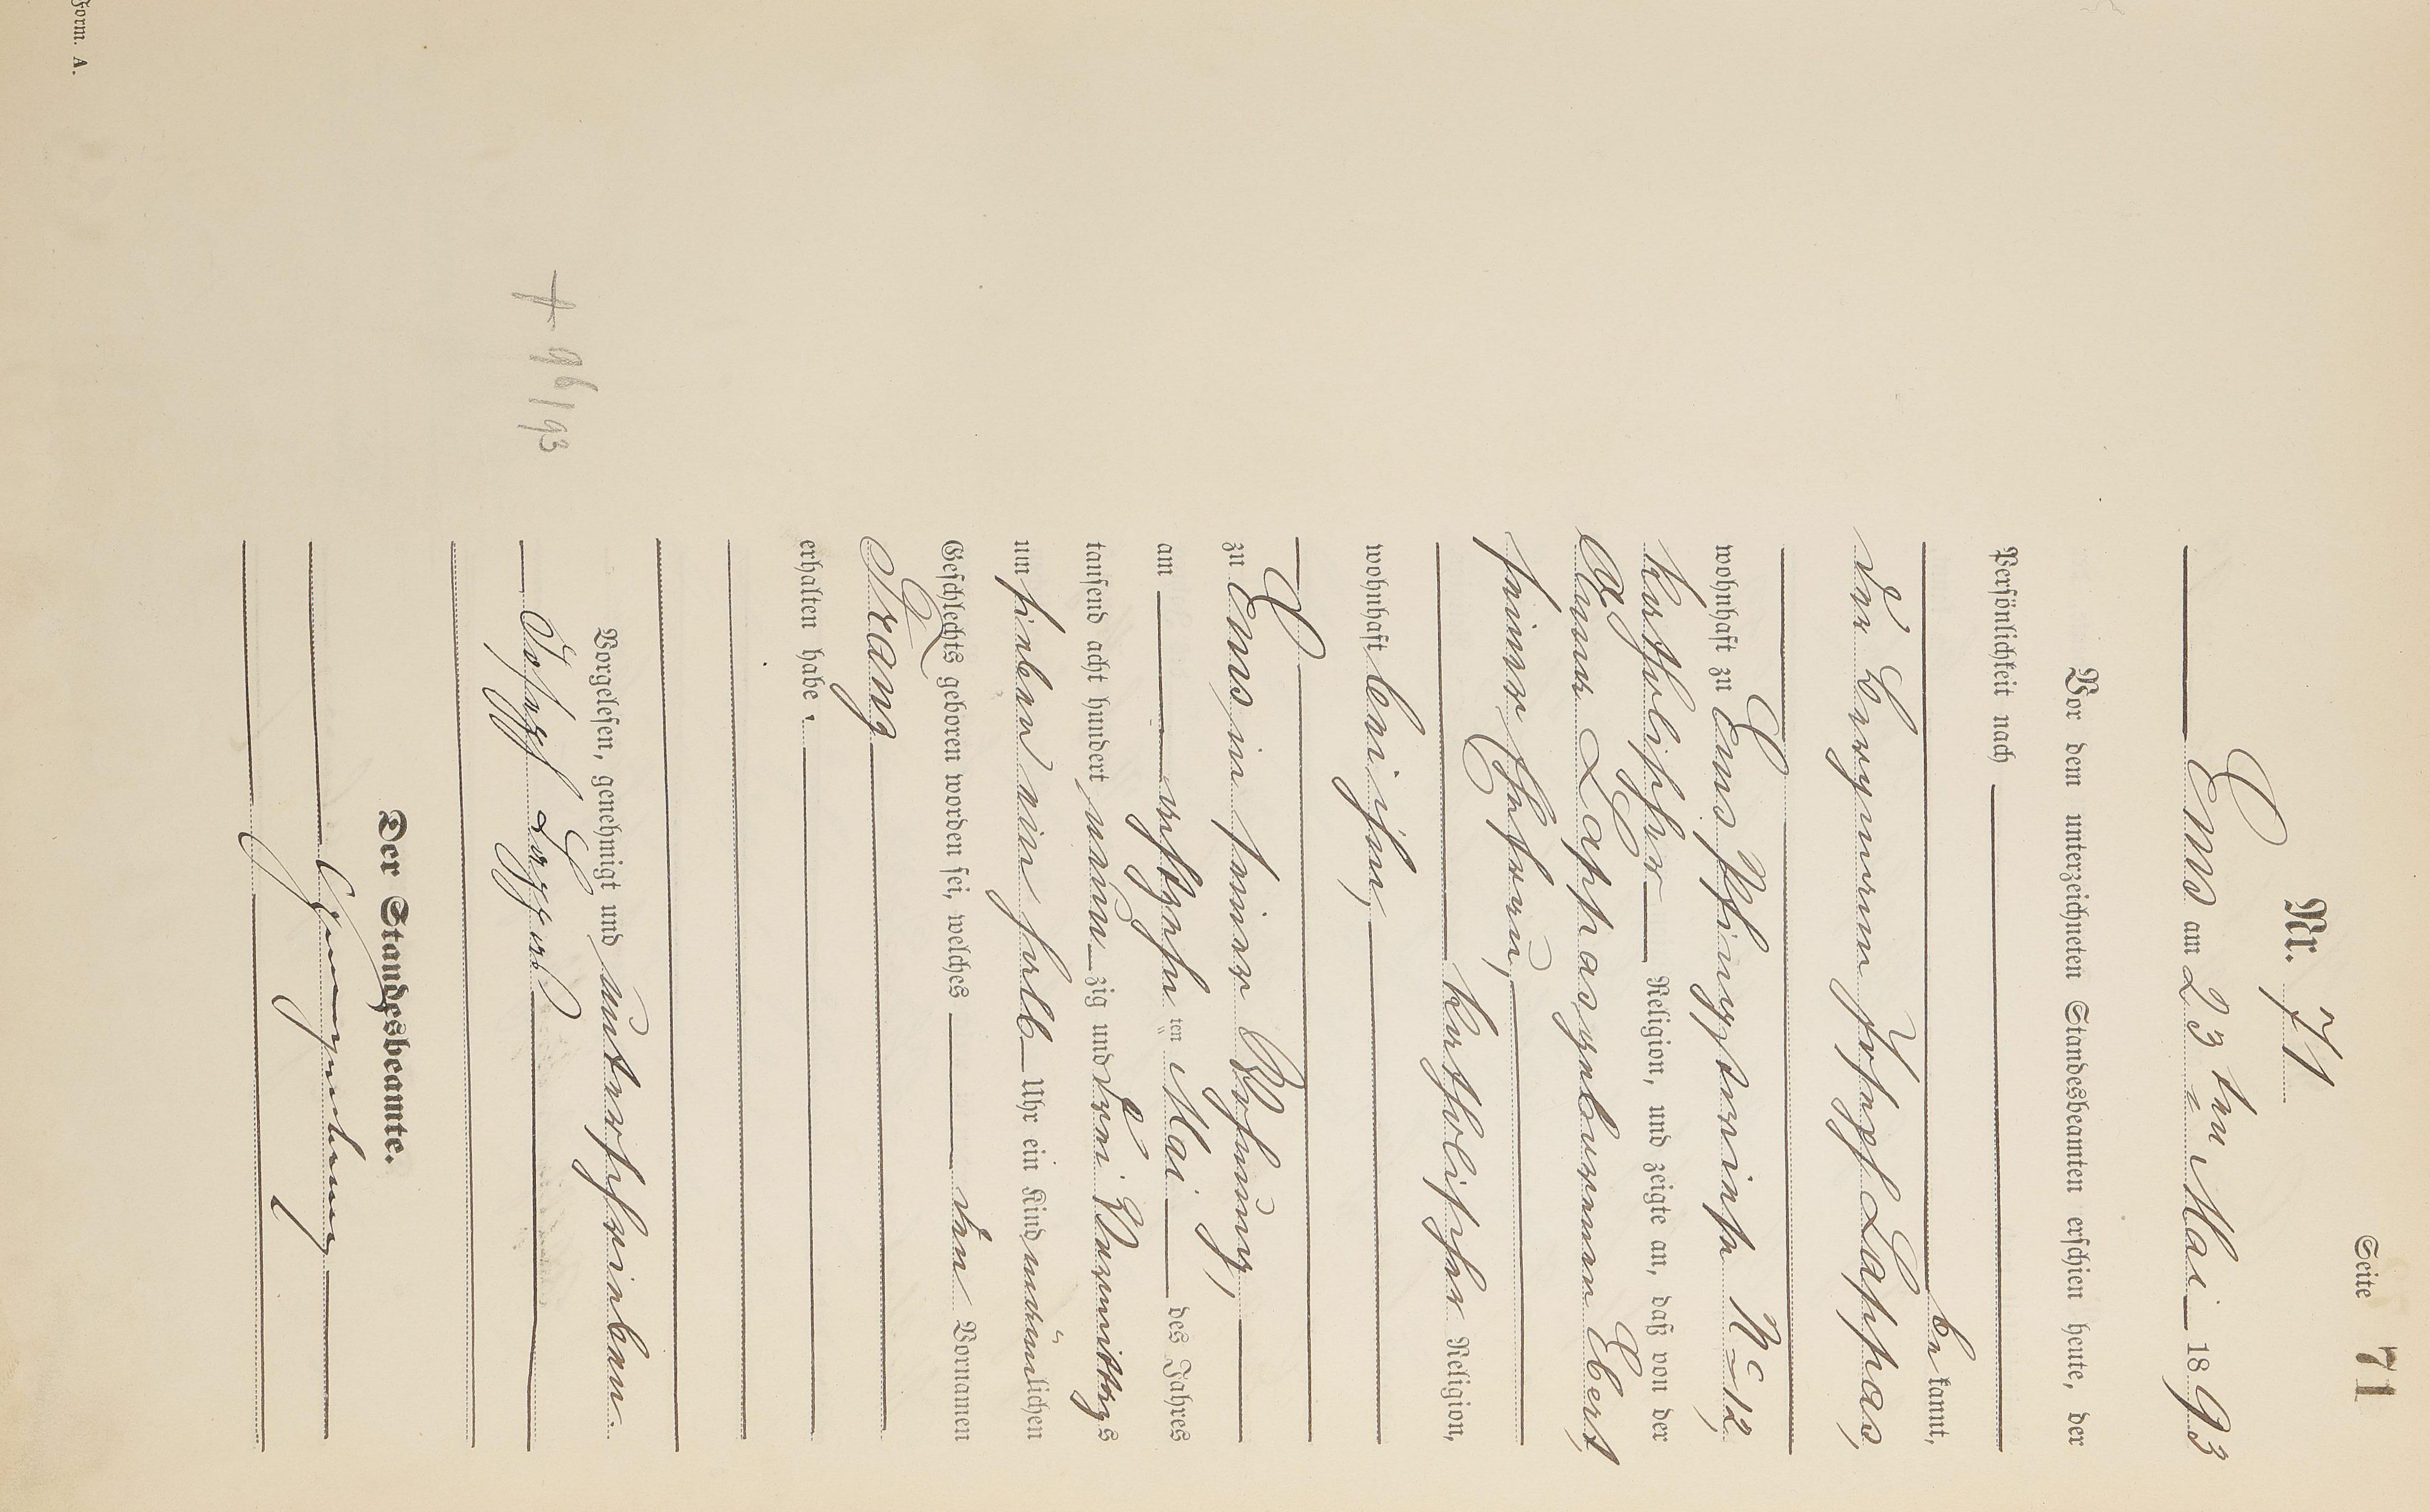 Seite 71
Nr. 71
Ems am 23ten Mai 1893
Vor dem unterzeichneten Standesbeamten erschien heute, der
Persönlichkeit nach
bekannt,
der Bergmann Joseph Lappas,
wohnhaft zu Ems Pfingstwiese No 12,
katholischer Religion, und zeigte an, daß von der
Anna Lappas geborenen Ebert,
seiner Ehefrau,
katholischer Religion,
wohnhaft bei ihm,
zu Ems in seiner Wohnung,
am achtzehn ten Mai des Jahres
tausend acht hundert neun zig und drei Vormittags
um sieben ein halb Uhr ein Kind männlichen
Geschlechts geboren worden sei, welches den Vornamen
Franz
erhalten habe.
Vorgelesen, genehmigt und unterschrieben.
Josef Lappas
Der Standesbeamte.
+ 96/93
Form. A.